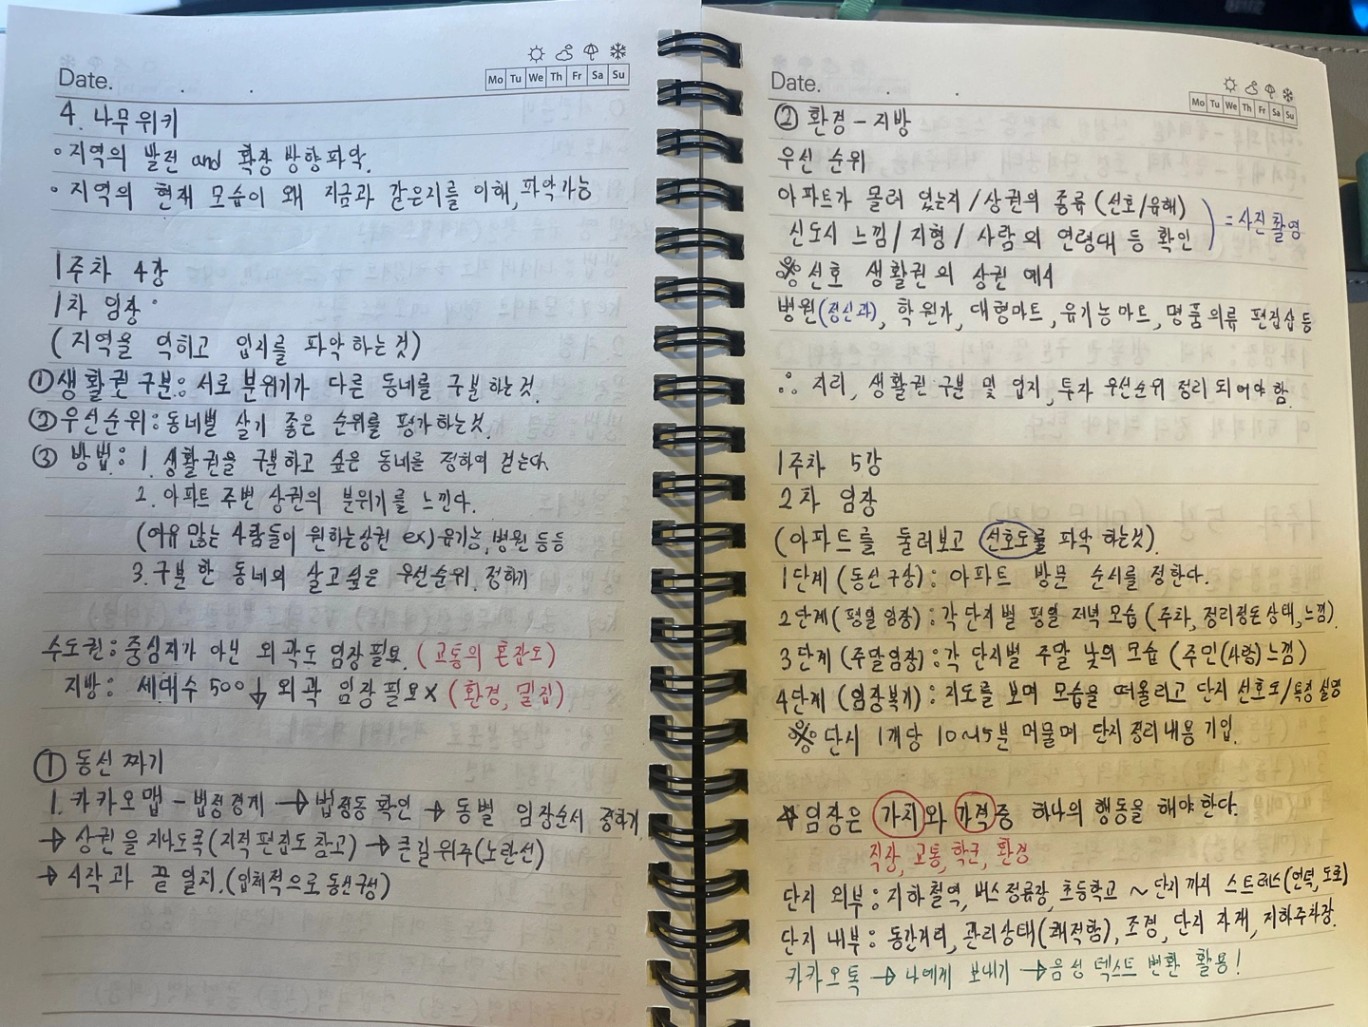 Date. . .
Mo Tu We Th Fr Sa Su
4. 나무위키
◦ 지역의 발전 and 확장 방향 파악.
◦ 지역의 현재 모습이 왜 지금과 같은지를 이해, 파악가능
1주차 4강
1차 임장 :
(지역을 익히고 입지를 파악하는것)
① 생활권 구분: 서로 분위기가 다른 동네를 구분하는것.
② 우선순위: 동네별 살기 좋은 순위를 평가하는것.
③ 방법: 1. 생활권을 구분하고 싶은 동네를 정하여 걷는다.
2. 아파트 주변 상권의 분위기를 느낀다.
(여유 많는 사람들이 원하는상권 ex) 유기능, 병원 등등
3. 구분 한 동네의 살고싶은 우선순위, 정하기
수도권: 중심지가 아닌 외곽도 임장필요. (교통의 혼잡도)
지방: 세대수 500↓ 외곽 임장 필요 x (환경, 밀집)
① 동선 짜기
1. 카카오맵 - 법정경계 → 법정동 확인 → 동별 임장순서 정하기
→ 상권을 지나도록(지적편집도 참고) → 큰길 위주(노란선)
→ 시작과 끝 일치.(입체적으로 동선구성)
Date. . .
Mo Tu We Th Fr Sa Su
② 환경 - 지방
우선 순위
아파트가 몰려 있는지 / 상권의 종류 (선호/유해)
신도시 느낌 / 지형 / 사람의 연령대 등 확인 ) = 사진촬영
※ 선호 생활권의 상권 예시
병원(정신과), 학원가, 대형마트, 유기농마트, 명품의류 편집샵 등
∴ 지리, 생활권 구분 및 입지, 투자 우선순위 정리 되어야 함.
1주차 5강
2차 임장
(아파트를 둘러보고 선호도를 파악 하는것).
1단계 (동선구상): 아파트 방문 순서를 정한다.
2단계 (평일 임장): 각 단지별 평일 저녁 모습 (주차, 정리정돈상태, 느낌)
3단계 (주말임장): 각 단지별 주말 낮의 모습 (주민(사람)느낌)
4단계 (임장복기): 지도를 보며 모습을 떠올리고 단지 선호도/특징 설명
※ 단지 1개당 10~15분 머물며 단지 정리내용 기입.
→ 임장은 가치와 가격중 하나의 행동을 해야한다.
직장, 교통, 학군, 환경
단지 외부: 지하철역, 버스정류장, 초등학교 ~ 단지 까지 스트레스(언덕, 도로)
단지 내부: 동간거리, 관리상태(쾌적함), 조경, 단지 자재, 지하주차장.
카카오톡 → 나에게 보내기 → 음성 텍스트 변환 활용!